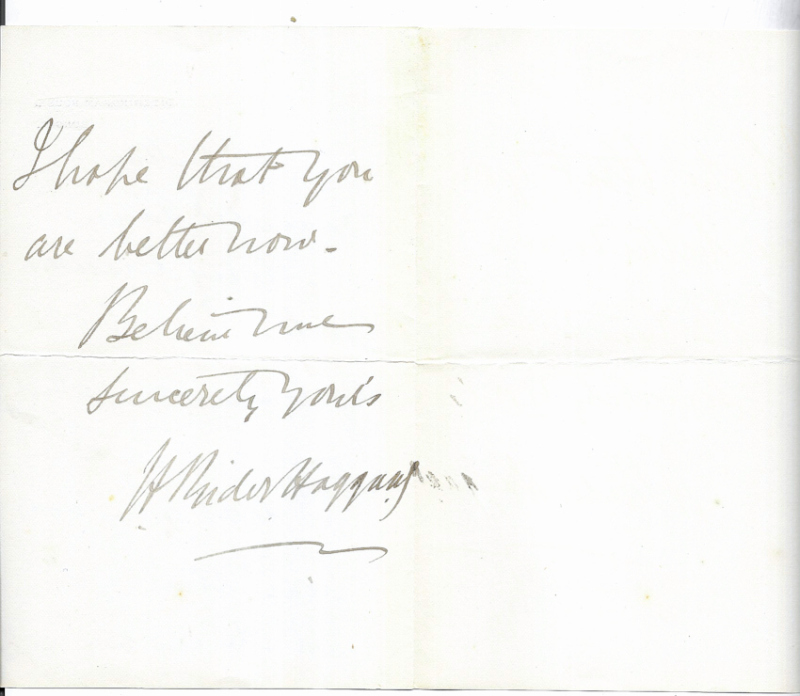 I hope that you
are better now.
Believe me
sincerely yours
H Rider Haggard